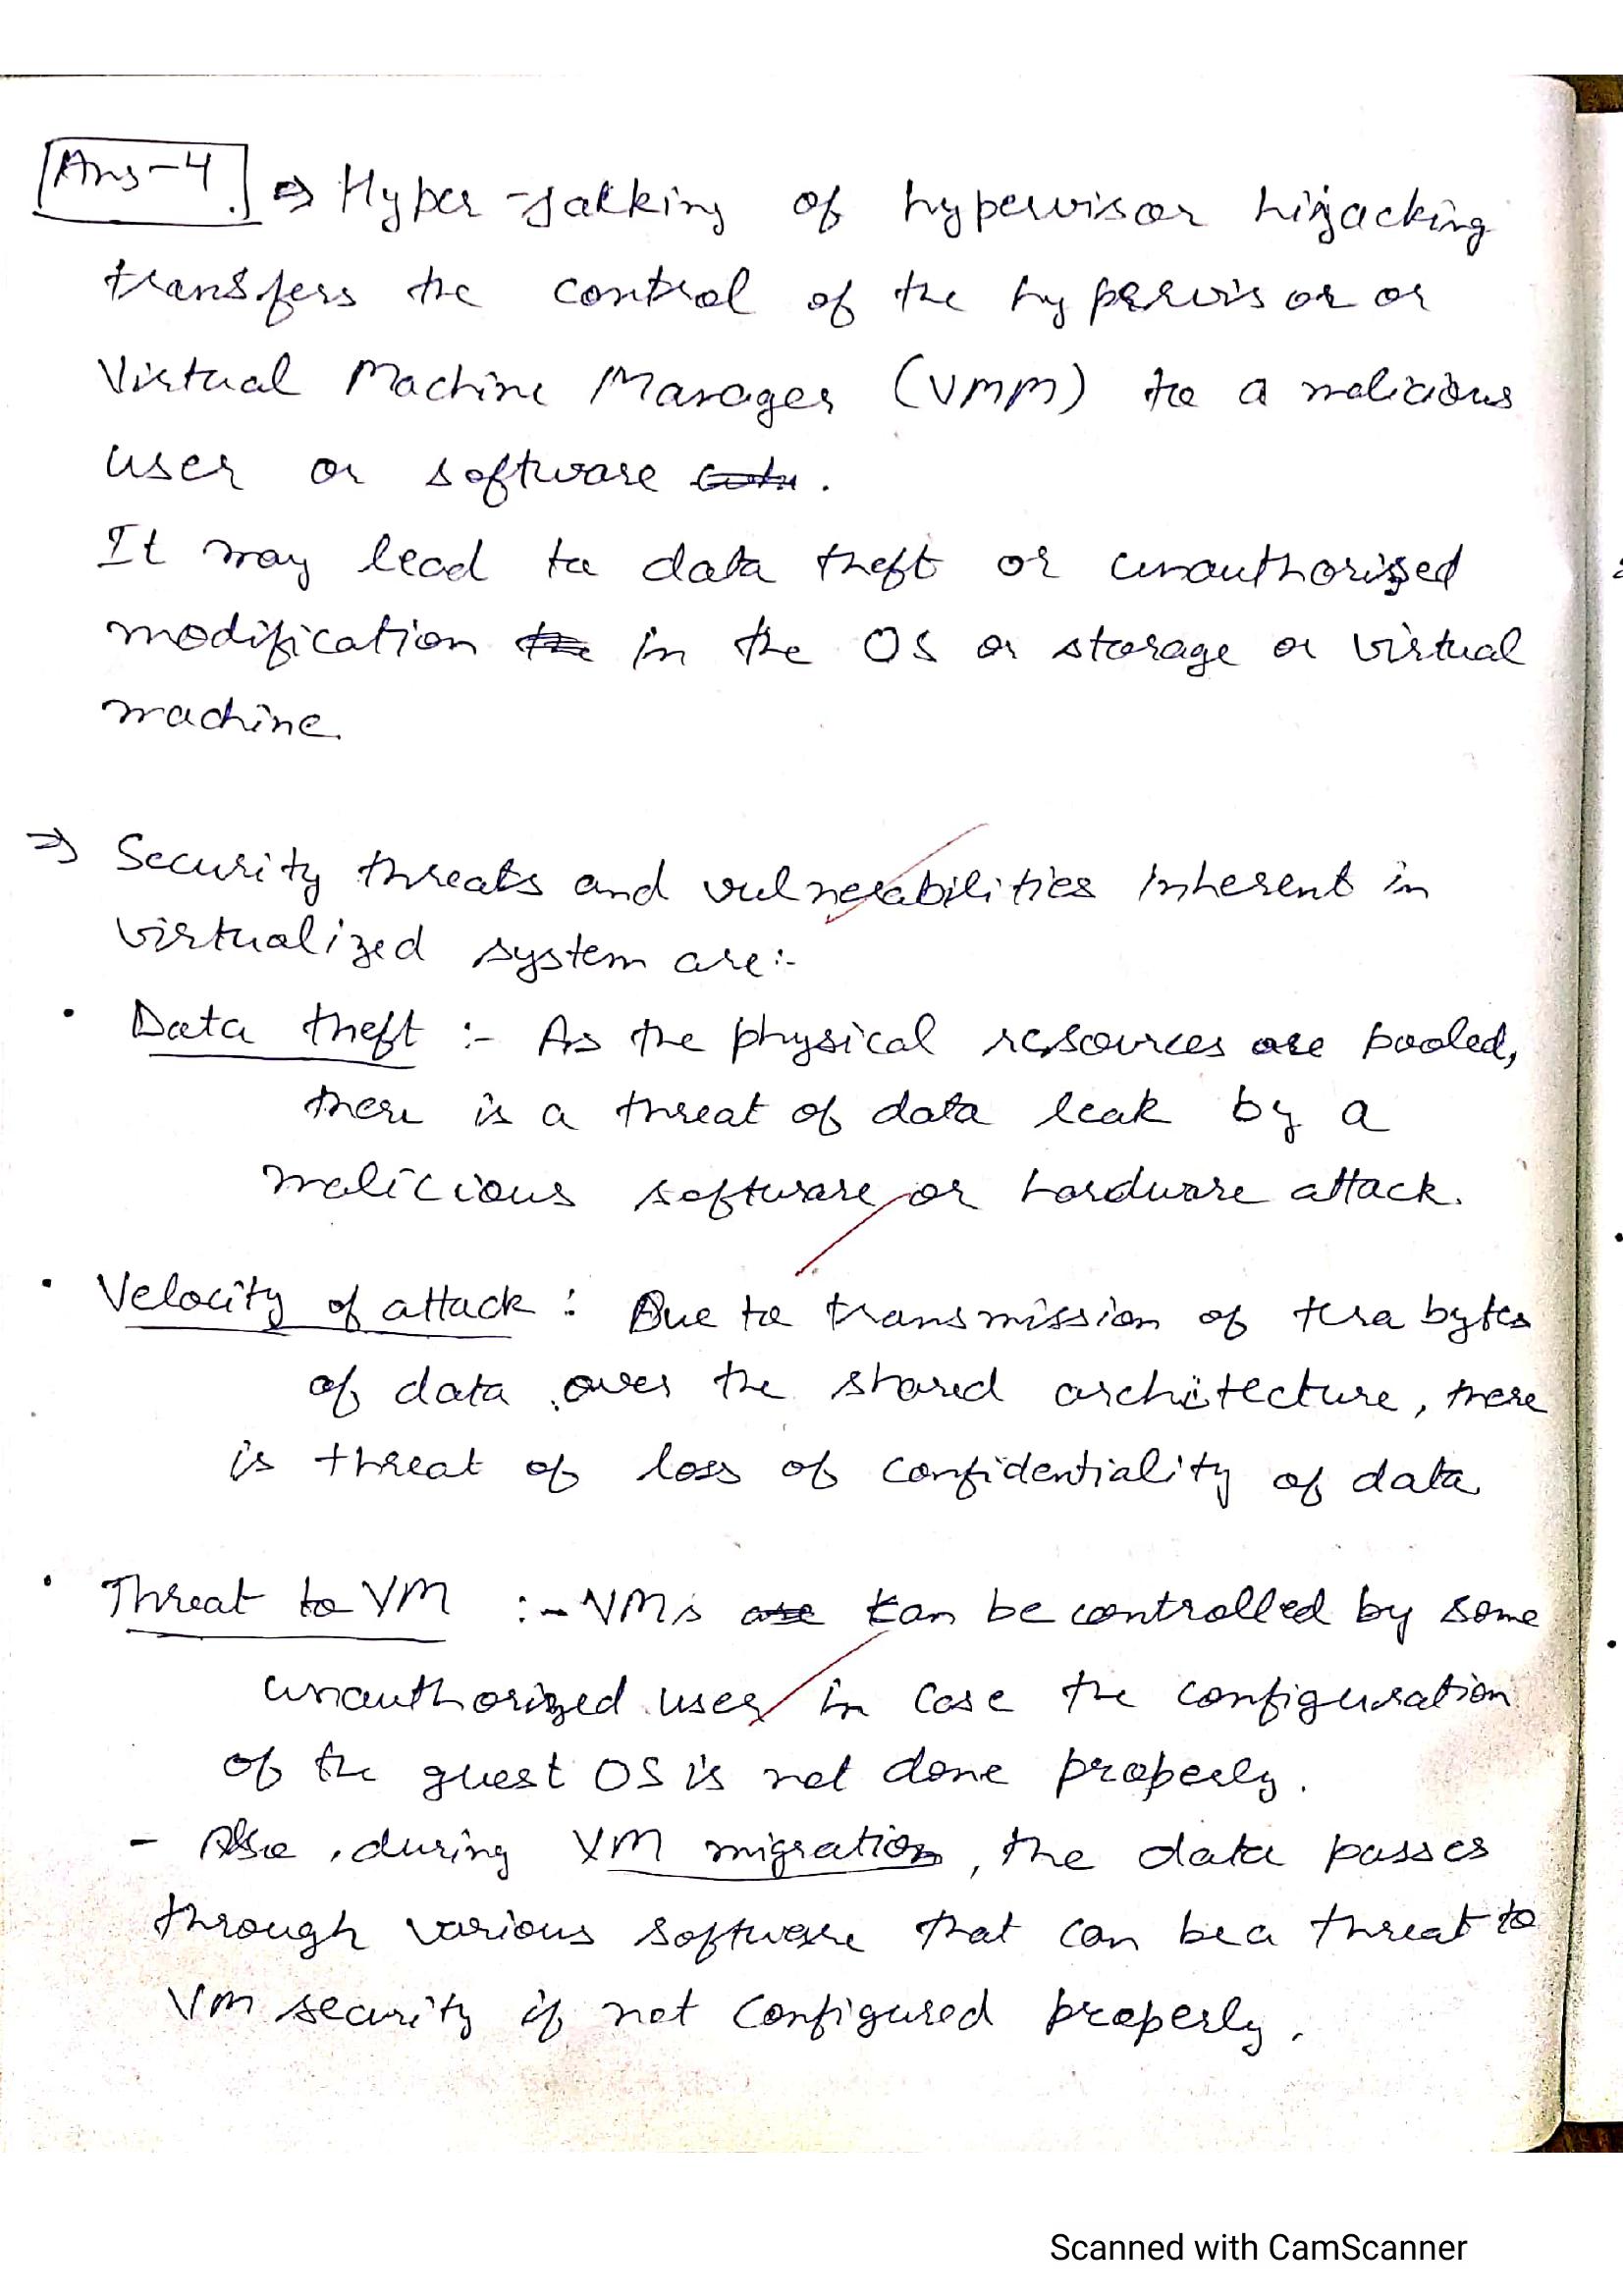 Ans-4 ⇒ Hyper-Jakking of hypervisor hijacking
transfers the control of the hypervisor or
Virtual Machine Manager (VMM) to a malicious
user or software.
It may lead to data theft or unauthorized
modification in the OS or storage or virtual
machine.
⇒ Security threats and vulnerabilities inherent in
virtualized system are:-
• Data theft :- As the physical resources are pooled,
there is a threat of data leak by a
malicious software or hardware attack.
• Velocity of attack : Due to transmission of tera bytes
of data over the shared architecture, there
is threat of loss of confidentiality of data
• Threat to VM :- VMs can be controlled by some
unauthorized user in case the configuration
of the guest OS is not done properly.
- Also, during VM migration, the data passes
through various software that can be a threat to
VM security if not configured properly.
Scanned with CamScanner